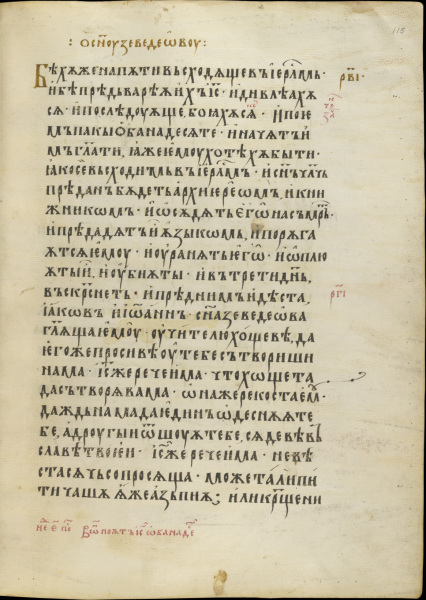 : о сн҃оу зеведеѡвоу :
Бѣхѫже на пѫти въсходѧще въ іер҃лмь ·
и бѣ прѣдварѣѫ ихь і҃с · и дивлѣахѫ
сѧ · и послѣдоуѫще, боꙗхѫсѧ · и поѥ
мь пакы обанадесѧте · и начѧть и
мь гл҃ати, ꙗже имоу хотѣхѫ быти ·
ꙗко се въсходимь въ іер҃лмь · и сн҃ь чл҃чь
прѣдань бѫдеть архиереѡмь, и кни
жникѡмь · и ѡсѫдѧть его на съмрть ·
и прѣдадѧть и ѫзыкѡмь, и порѫга
ѫтсѧ емоу · и оуранѧть его · и ѡплю
ѫть и, и оубиѫть · и въ трети дн҃ь,
въскрьснеть · и прѣд нимь идѣста,
іакѡвь и іѡаннь · сн҃а зеведеѡва
гл҃ѧща емоу · оучителю хощевѣ, да
егоже просивѣ оу тебе сътвориши
нама · і҃сже рече има · что хощета
да сътворѧ вама · ѡнаже рекоста емоу ·
даждь нама да единь ѡ деснѫѧ те
бе, а дроугыи ѡ шоуѧѧ тебе, сѧдевѣ въ
славѣ твоеи · і҃сже рече има · не вѣ
стасѧ чьсо просѧща · можета ли пи
ти чашѫ ѫже азь пиѫ ; или кр҃щени